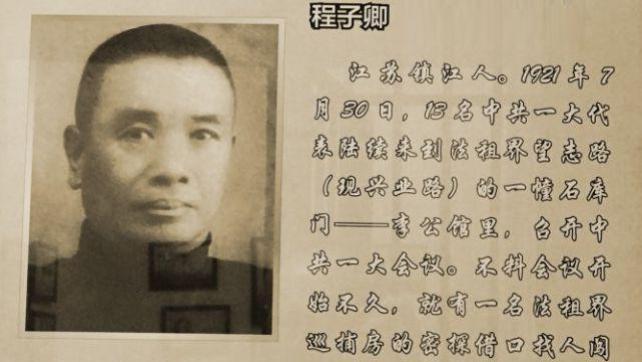 程子卿
江苏镇江人。1921年7
月30日，13名中共一大代
表陆续来到法租界望志路
（现兴业路）的一幢石库
门——李公馆里，召开中
共一大会议。不料会议开
始不久，就有一名法租界
巡捕房的密探借口找人闯